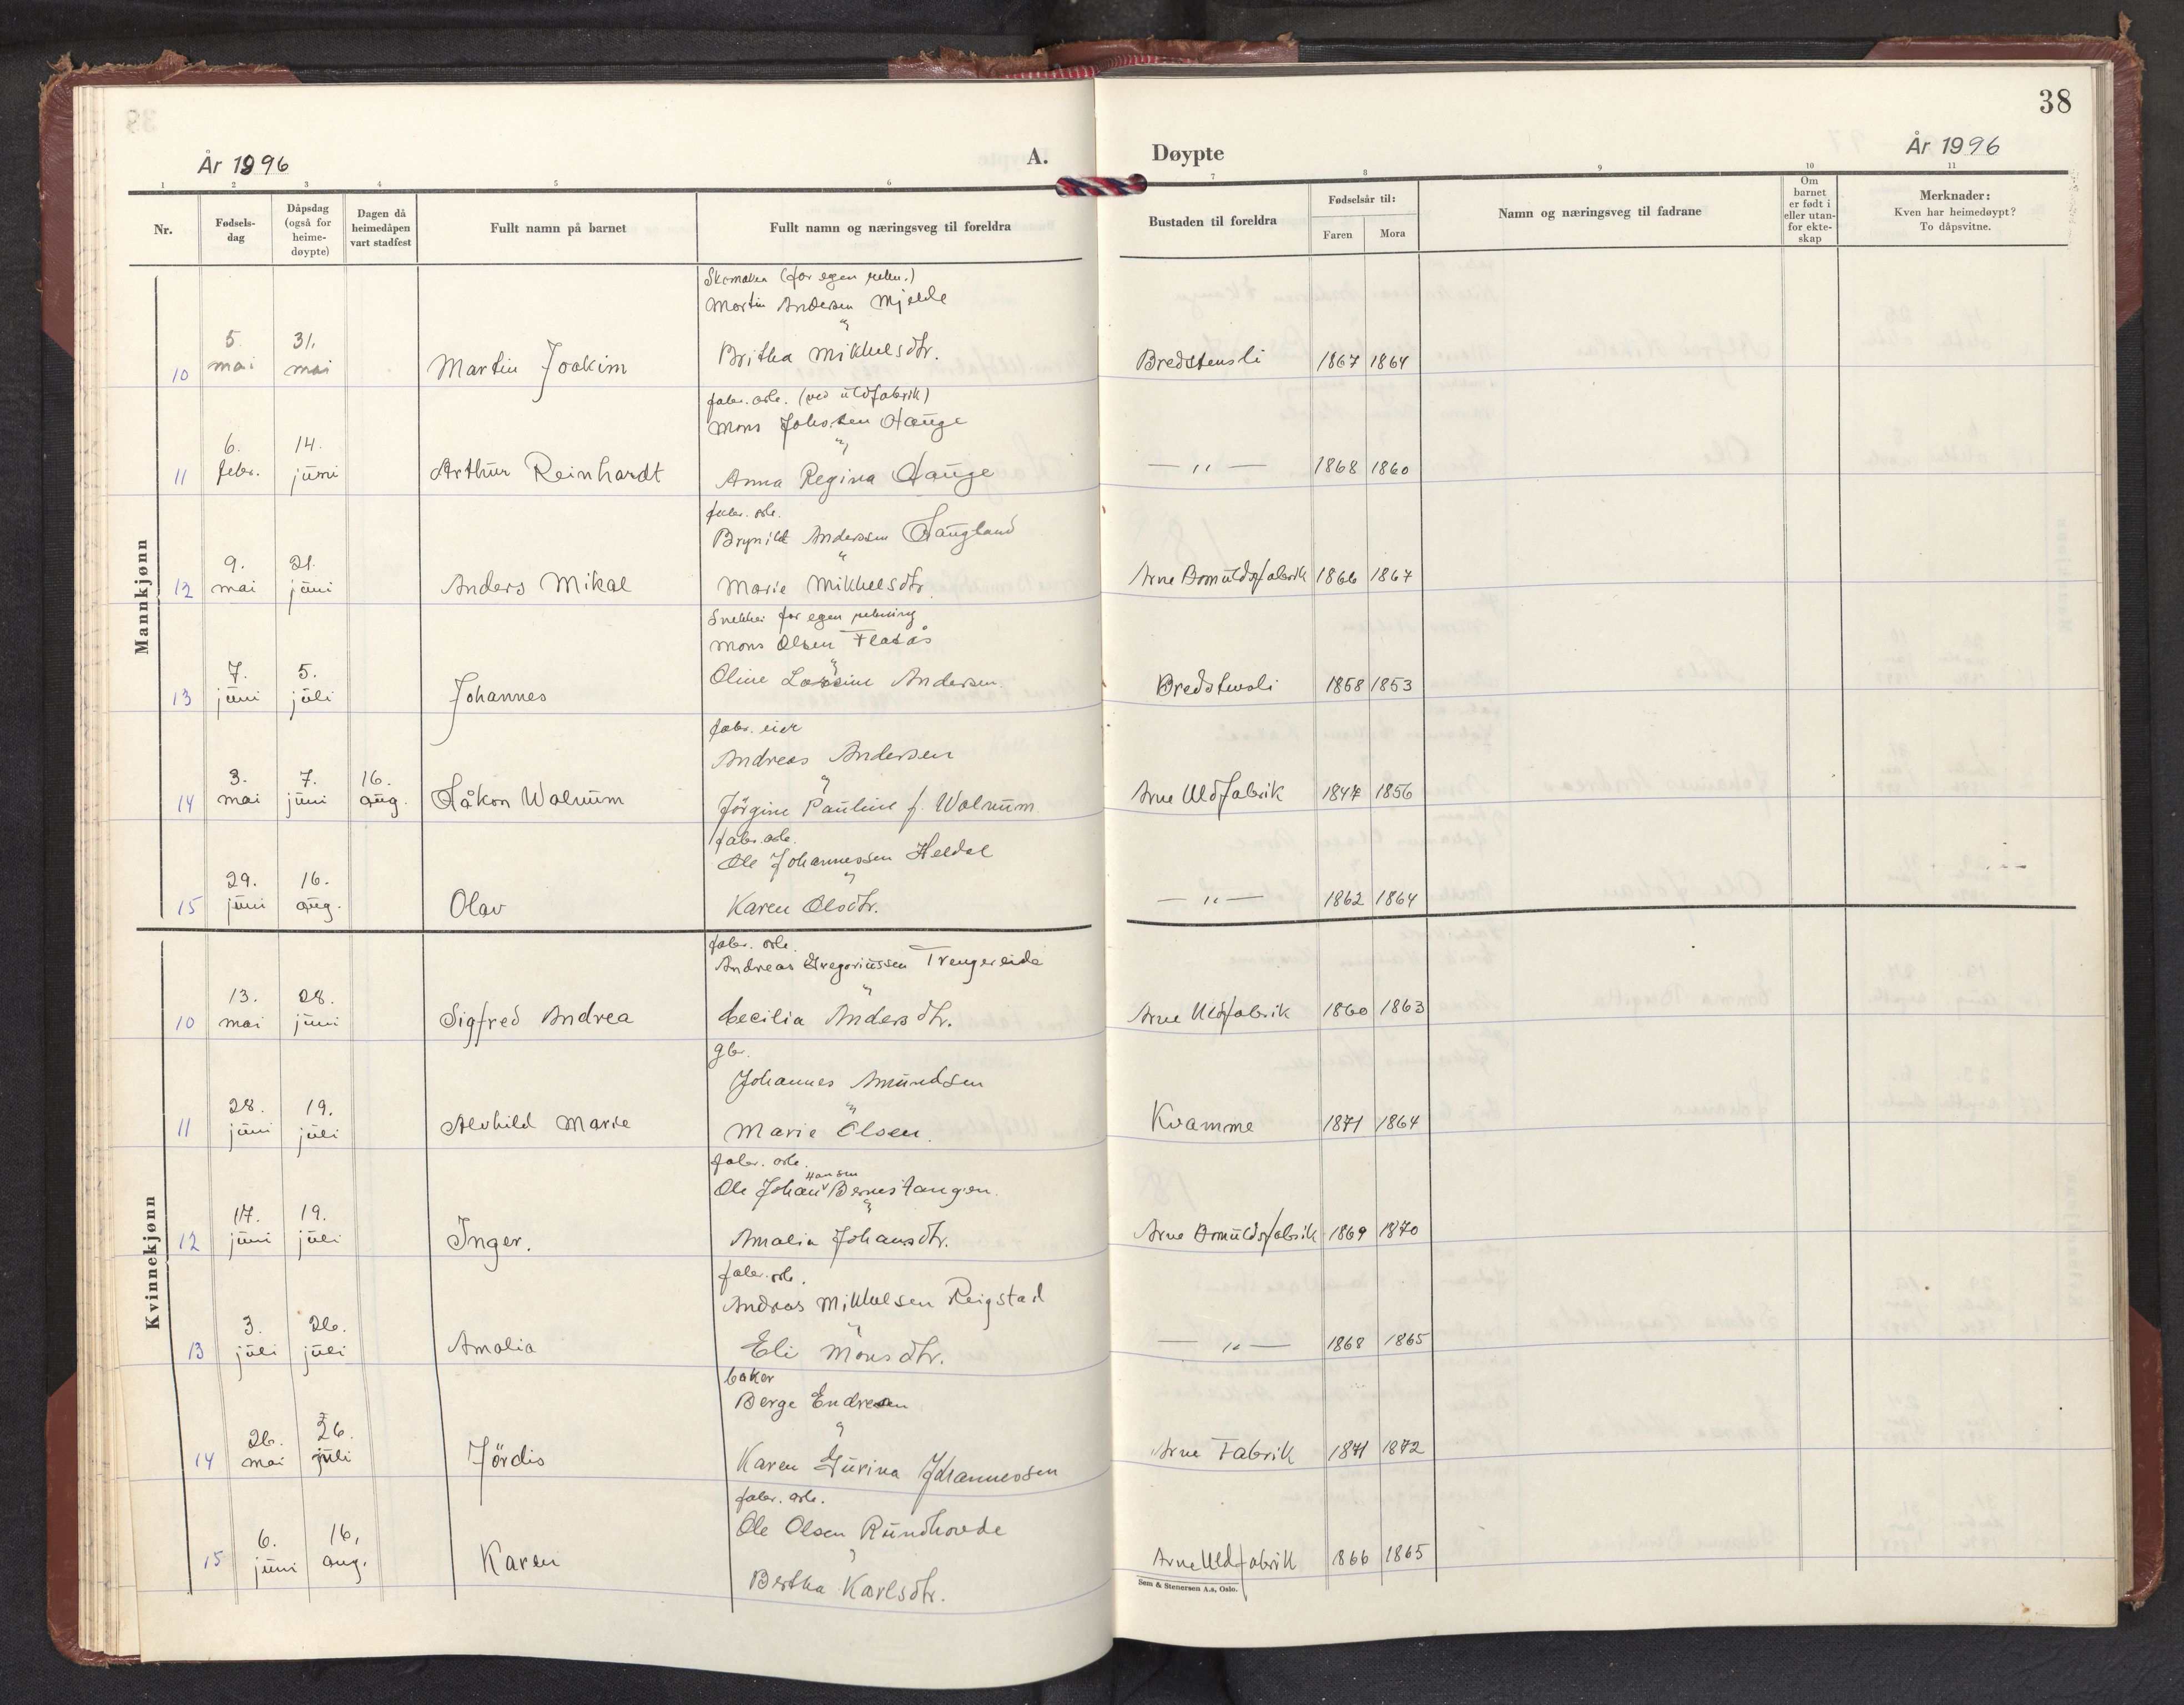 38
År 1896
A.
Døypte
År 1996
1 2 3 4 5 6 7 8 9 10 11
Nr.
Fødsels-
dag
Dåpsdag
(også for
heime-
døypte)
Dagen då
heimedåpen
vart stadfest
Fullt namn på barnet
Fullt namn og næringsveg til foreldra
Bustaden til foreldra
Fødselsår til:
Faren
Mora
Namn og næringsveg til fadrane
Om
barnet
er født i
eller utan-
for ekte-
skap
Merknader:
Kven har heimedøypt?
To dåpsvitne.
Mankjønn
Skomaker (for egen rekn.)
Martin Andersen Mjelde
"
10 5. mai 31. mai Martin Joakim Britha Mikkelsdtr. Bredstensli 1867 1864
fabr. arb. (ved uldfabrik)
Mons Johs.sen Hauge
"
11 6. febr. 14. juni Arthur Reinhardt Anna Regina Hauge — " — 1868 1860
fabr. arb.
Brynild Anderssen Haugland
"
12 9. mai 21. juni Anders Mikal Marie Mikkelsdtr. Arne Bomuldsfabrik 1866 1867
Snekker for egen rekning
Mons Olsen Flatås
"
13 7. juni 5. juli Johannes Oline Andersen. Bredstensli 1858 1853
fabr. eier
Andreas Andersen
"
14 3. mai 7. juni 16. aug. Håkon Walnum Jörgine Pauline f. Walnum. Arne Uldfabrik 1847 1856
fabr. arb.
Ole Johannessen Heldal
"
15 29. juni 16. aug. Olav Karen Olsdtr. — " — 1862 1864
Kvinnekjønn
fabr. arb.
Andreas Gregoriussen Trengereide
"
10 13. mai 28. juni Sigfred Andrea Cecilia Andersdtr. Arne Uldfabrik 1860 1863
gbr.
Johannes Amundsen
"
11 28. juni 19. juli Alvhild Marie Marie Olsen. Kvamme 1871 1864
fabr. arb.
Hansen
Ole Johan Bernestangen.
"
12 17. juni 19. juli Inger. Amalia Johansdtr. Arne Bomuldsfabrik 1869 1870
fabr. arb.
Andras Mikkelsen Reigstad
"
13 3. juli 26. juli Amalia Eli Monsdtr. — " — 1868 1865
baker
Berge Endresen
"
14 26. mai 26. juli Jördis Karen Gurina Johannessen Arne Fabrik 1871 1872
fabr. arb.
Ole Olsen Rundhovde
"
15 6. juni 16. aug. Karen Bertha Karlsdtr. Arne Uldfabrik 1866 1865
Sem & Stenersen A.s, Oslo.